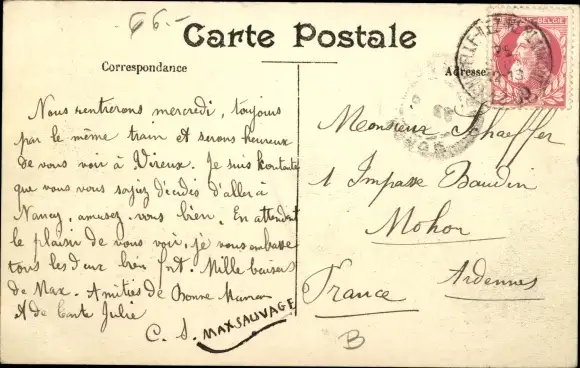 66.-
Carte Postale
Correspondance
Adresse
Nous rentrerons mercredi, toujours
par le même train et serons heureux
de vous voir à Vireux. Je suis contente
que vous vous soyez décidés d'aller à
Nancy, amusez-vous bien. En attendant
le plaisir de vous voir, je vous embrasse
tous les deux bien fort. Mille baisers
de Max. Amitiés de Bonne Maman
& de tante Julie
C. S.
MAXSAUVAGE
Monsieur Schaeffer
1 Impasse Baudin
Mohon
Ardennes
France
B